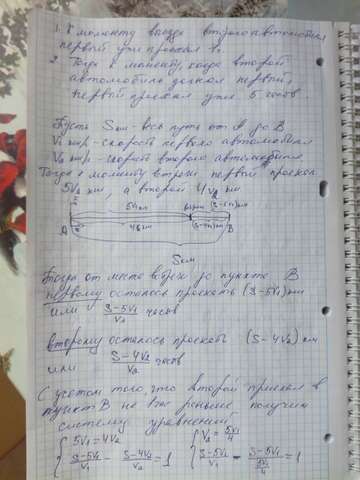 1. К моменту выезда второго автомобиля
первый уже проехал 1ч.
2. Тогда к моменту, когда второй
автомобиль догнал первый,
первый проехал уже 5 часов
Пусть Sкм - весь путь от A до B
V₁ км/ч - скорость первого автомобиля
V₂ км/ч - скорость второго автомобиля
Тогда к моменту встречи первый проехал
5V₁ км, а второй 4V₂ км
A
B
Sкм
Тогда от места встречи до пункта B
первому осталось проехать (S-5V₁) км
или S-5V₁/V₁ часов
второму осталось проехать (S-4V₂) км
или S-4V₂/V₂ часов
С учетом того, что второй приехал в
пункт B на час раньше получим
систему уравнений
{5V₁=4V₂ {V₂=5V₁/4
{S-5V₁/V₁ - S-4V₂/V₂ = 1 {S-5V₁/V₁ - S-5V₁/(5V₁/4) = 1